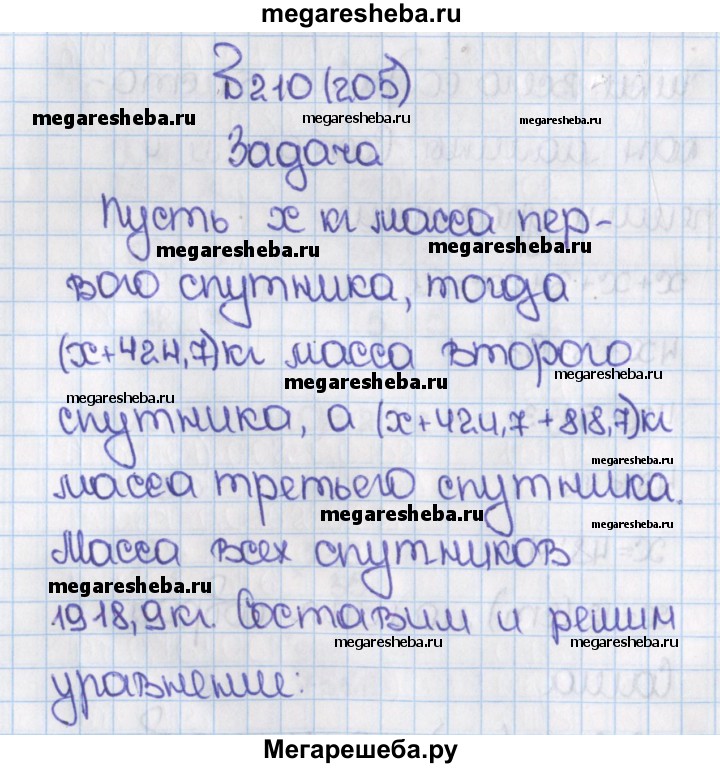 megaresheba.ru
В 210 (205)
megaresheba.ru megaresheba.ru megaresheba.ru
Задача
Пусть x кг масса пер-
megaresheba.ru megaresheba.ru
вого спутника, тогда
(x+424,7)кг масса второго
megaresheba.ru megaresheba.ru megaresheba.ru
спутника, а (x+424,7+818,7)кг
megaresheba.ru
масса третьего спутника.
megaresheba.ru megaresheba.ru
Масса всех спутников
megaresheba.ru
1918,9 кг. Составим и решим
megaresheba.ru megaresheba.ru
уравнение:
Мегарешеба.ру